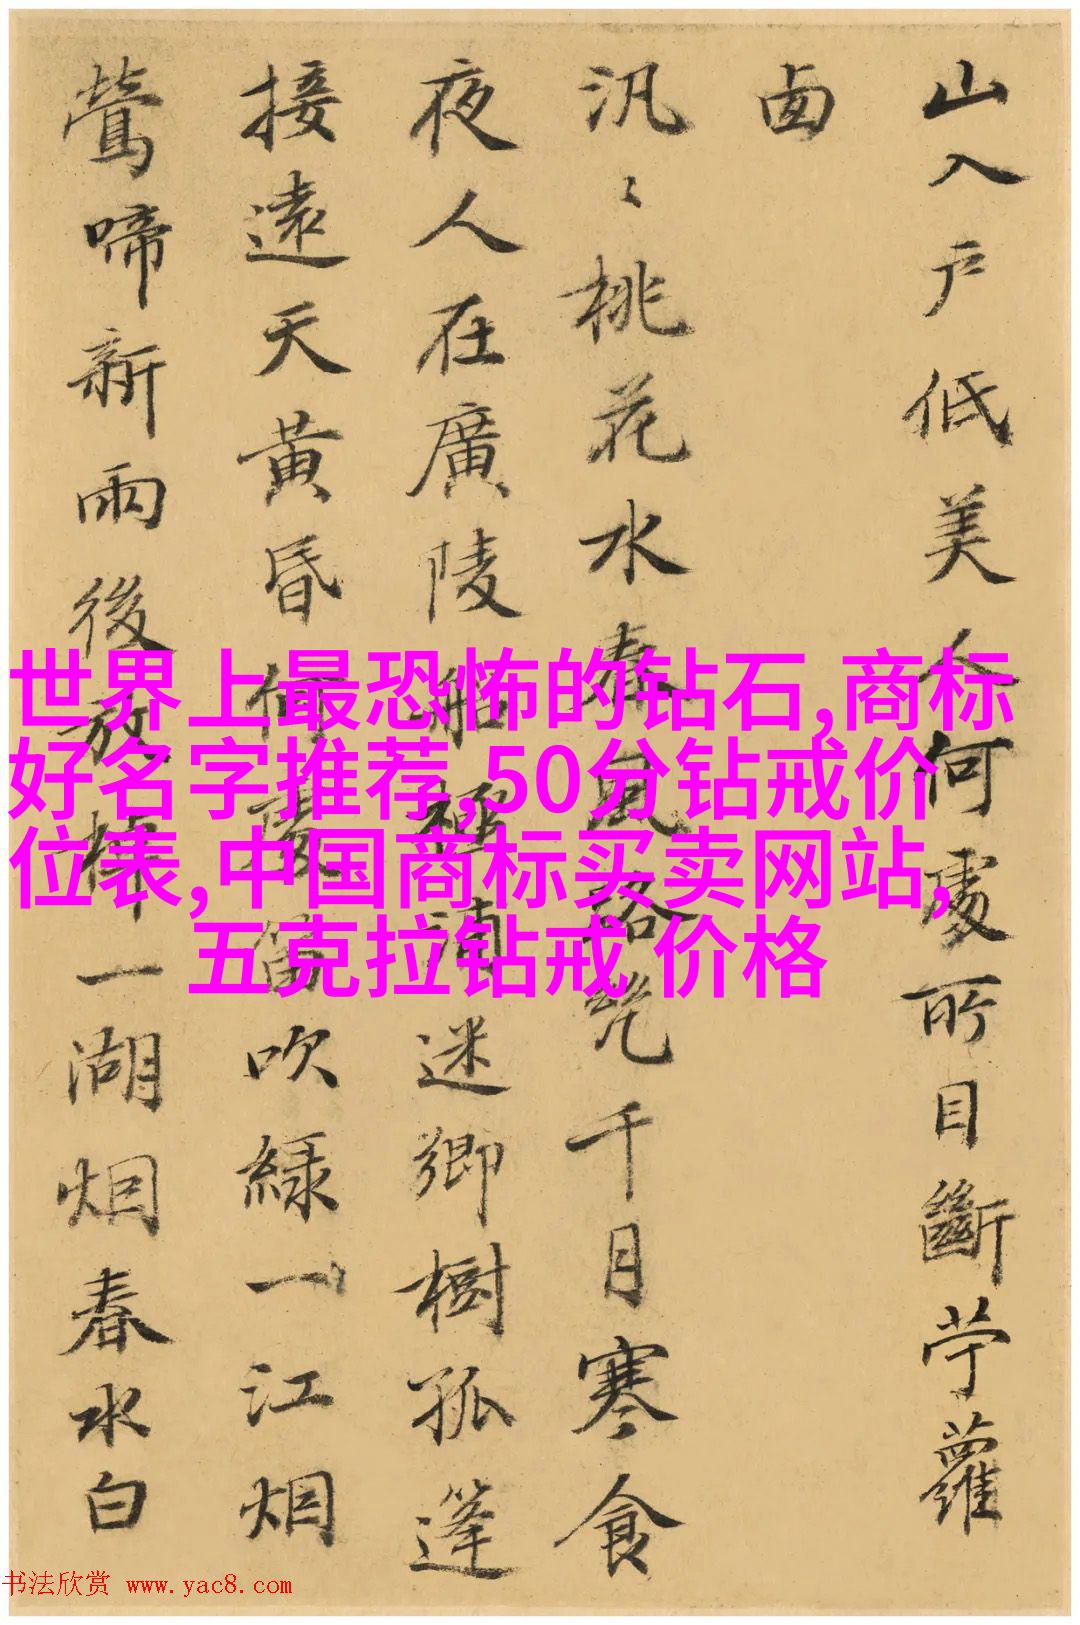 山入户低美人何處所目斷苧蘿
西
汎〻桃花水春風路幾千月寒食
夜人在廣陵船極浦迷鄉樹孤篷
接遠天黄昏何處笛吹緑一江烟
鶯啼新雨後放棹一湖烟春水白
世界上最恐怖的钻石,商标
好名字推荐,50分钻戒价
位表,中国商标买卖网站,
五克拉钻戒 价格
书法欣赏 www.yac8.com